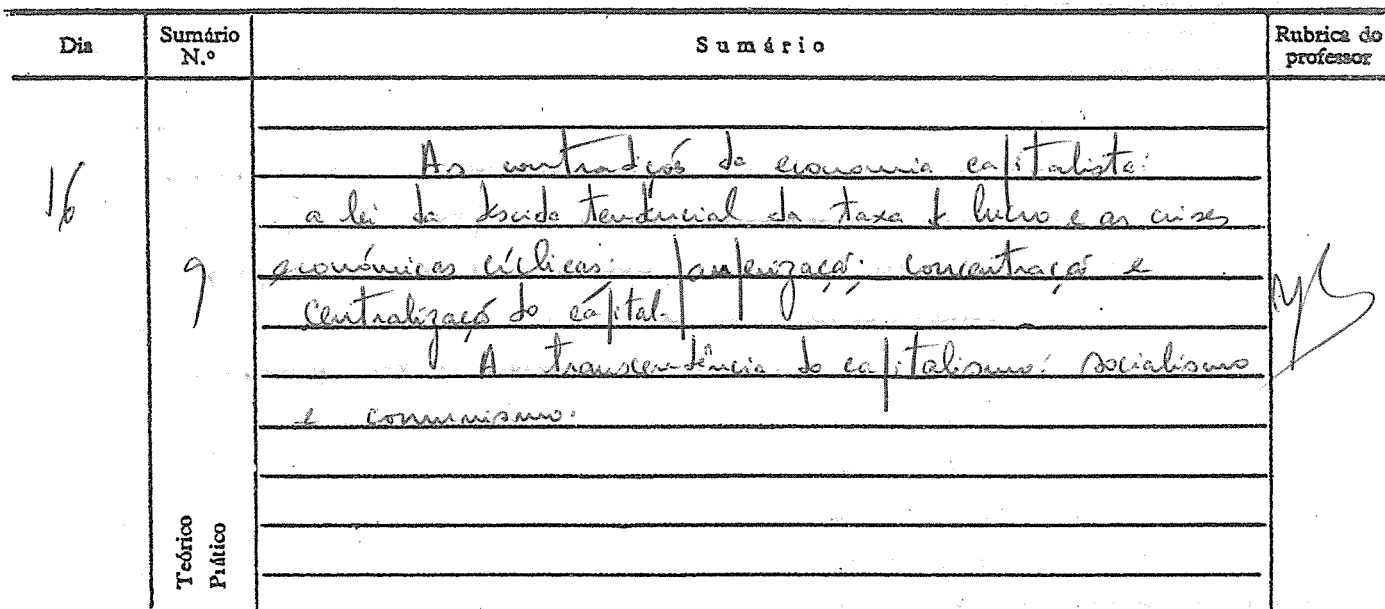 Dia
Sumário N.º
Sumário
Rubrica do professor
16
9
As contradições da economia capitalista:
a lei da descida tendencial da taxa de lucro e as crises
económicas cíclicas. pauperização; concentração e
centralização do capital.
A transcendência do capitalismo: socialismo
e comunismo.
Teórico
Prático